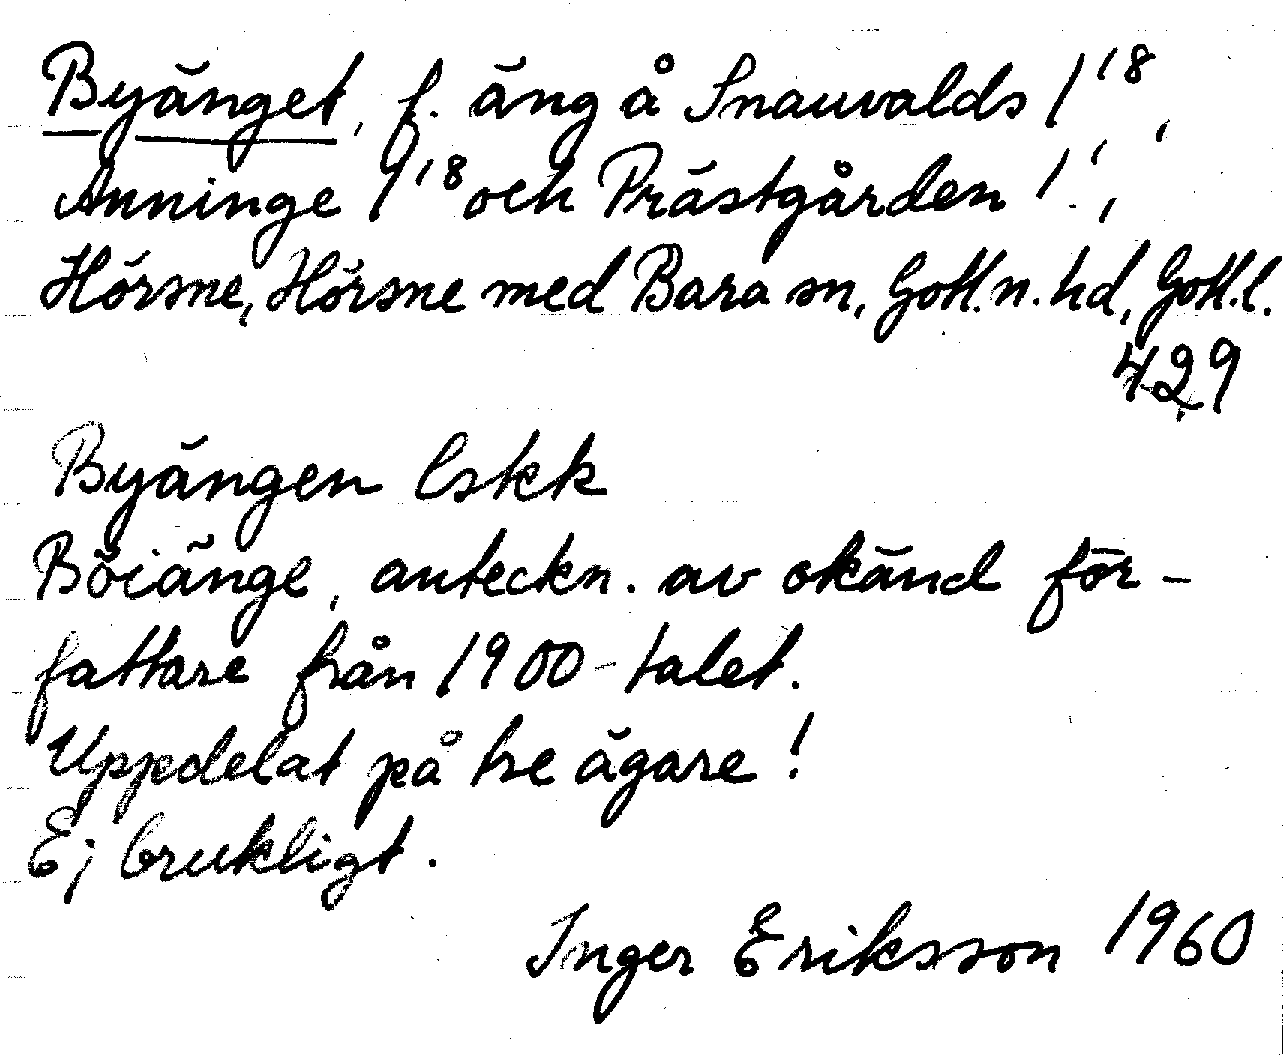 Byänget, f. äng å Snauvalds 1¹⁸,
Anninge 1¹⁸ och Prästgården 1¹,
Hörsne, Hörsne med Bara sn, Gotl. n. hd, Gotl. l.
429
Byängen lskk
Böiänge, anteckn. av okänd för-
fattare från 1900-talet.
Uppdelat på tre ägare!
Ej brukligt.
Inger Eriksson 1960